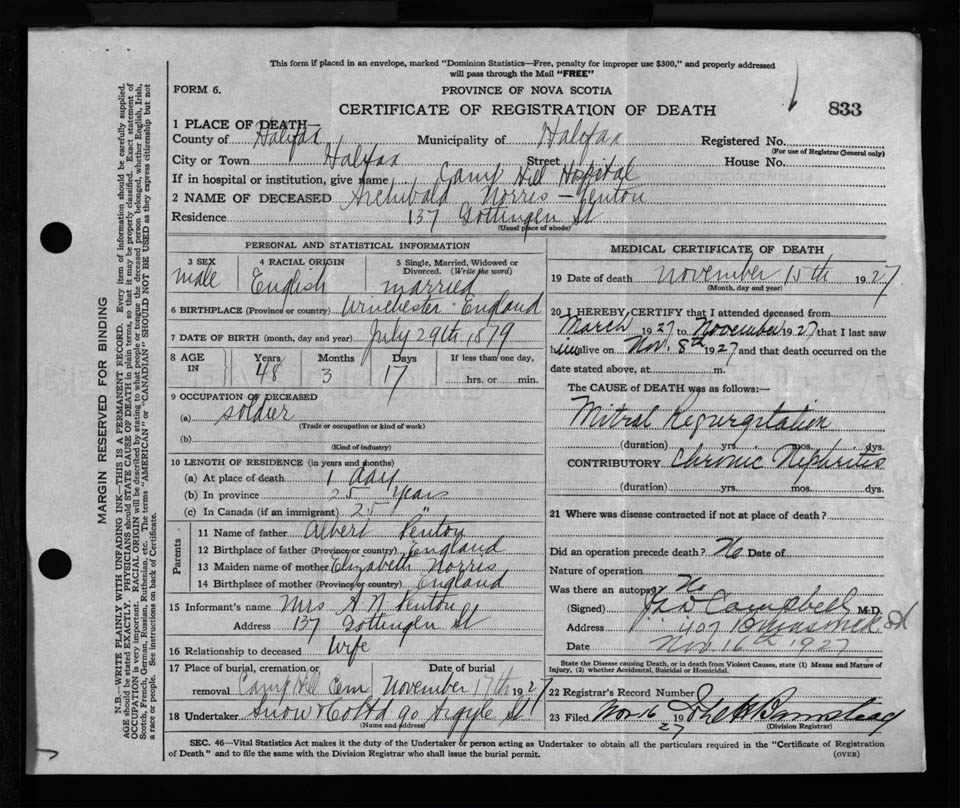 This form if placed in an envelope, marked "Dominion Statistics—Free, penalty for improper use $300," and properly addressed
will pass through the Mail "FREE"
FORM 6.
PROVINCE OF NOVA SCOTIA
CERTIFICATE OF REGISTRATION OF DEATH
833
1 PLACE OF DEATH
County of Halifax Municipality of Halifax Registered No.
(For use of Registrar General only)
City or Town Halifax Street House No.
If in hospital or institution, give name Camp Hill Hospital
2 NAME OF DECEASED Archibald Norris - Penton
Residence 137 Gottingen St
(Usual place of abode)
PERSONAL AND STATISTICAL INFORMATION
3 SEX 4 RACIAL ORIGIN 5 Single, Married, Widowed or Divorced. (Write the word)
male English married
6 BIRTHPLACE (Province or country) Winchester England
7 DATE OF BIRTH (month, day and year) July 29th, 1879
8 AGE IN Years Months Days If less than one day,
48 3 17 hrs. or min.
9 OCCUPATION OF DECEASED
(a) soldier
(Trade or occupation or kind of work)
(b)
(Kind of industry)
10 LENGTH OF RESIDENCE (in years and months)
(a) At place of death 1 day
(b) In province 25 years
(c) In Canada (if an immigrant) 25 "
Parents
11 Name of father Albert Penton
12 Birthplace of father (Province or country) England
13 Maiden name of mother Elizabeth Norris
14 Birthplace of mother (Province or country) England
15 Informant's name Mrs A N Penton
Address 137 Gottingen St
16 Relationship to deceased Wife
17 Place of burial, cremation or removal Date of burial
Camp Hill Cem November 17th 1927
18 Undertaker Snow & Co Ltd 90 Argyle St
(Name and address)
MEDICAL CERTIFICATE OF DEATH
19 Date of death November 15th 1927
(Month, day and year)
20 I HEREBY CERTIFY that I attended deceased from
March 1927 to November 1927 that I last saw
him alive on Nov. 8th 1927 and that death occurred on the
date stated above, at m.
The CAUSE of DEATH was as follows:—
Mitral Regurgitation
(duration) yrs. mos. dys.
CONTRIBUTORY Chronic Nephritis
(duration) yrs. mos. dys.
21 Where was disease contracted if not at place of death?
Did an operation precede death? No Date of
Nature of operation
Was there an autopsy? No
(Signed) Campbell M.D.
Address 407 Brunswick St
Date Nov. 16th 1927
State the Disease causing Death, or in death from Violent Causes, state (1) Means and Nature of
Injury, (2) whether Accidental, Suicidal or Homicidal.
22 Registrar's Record Number
23 Filed Nov 16 1927
(Division Registrar)
SEC. 46—Vital Statistics Act makes it the duty of the Undertaker or person acting as Undertaker to obtain all the particulars required in the "Certificate of Registration
of Death" and to file the same with the Division Registrar who shall issue the burial permit.
(OVER)
MARGIN RESERVED FOR BINDING
N.B.—WRITE PLAINLY WITH UNFADING INK—THIS IS A PERMANENT RECORD. Every item of information should be carefully supplied.
AGE should be stated EXACTLY. PHYSICIANS should STATE CAUSE OF DEATH in plain terms, so that it may be properly classified. Exact statement of
OCCUPATION is very important. RACIAL ORIGIN will be described by stating to what people or tongue the deceased person belonged, whether English, Irish,
Scotch, French, German, Russian, Ruthenian, etc. The terms "AMERICAN" or "CANADIAN" SHOULD NOT BE USED as they express citizenship but not
a race or people. See instructions on back of Certificate.